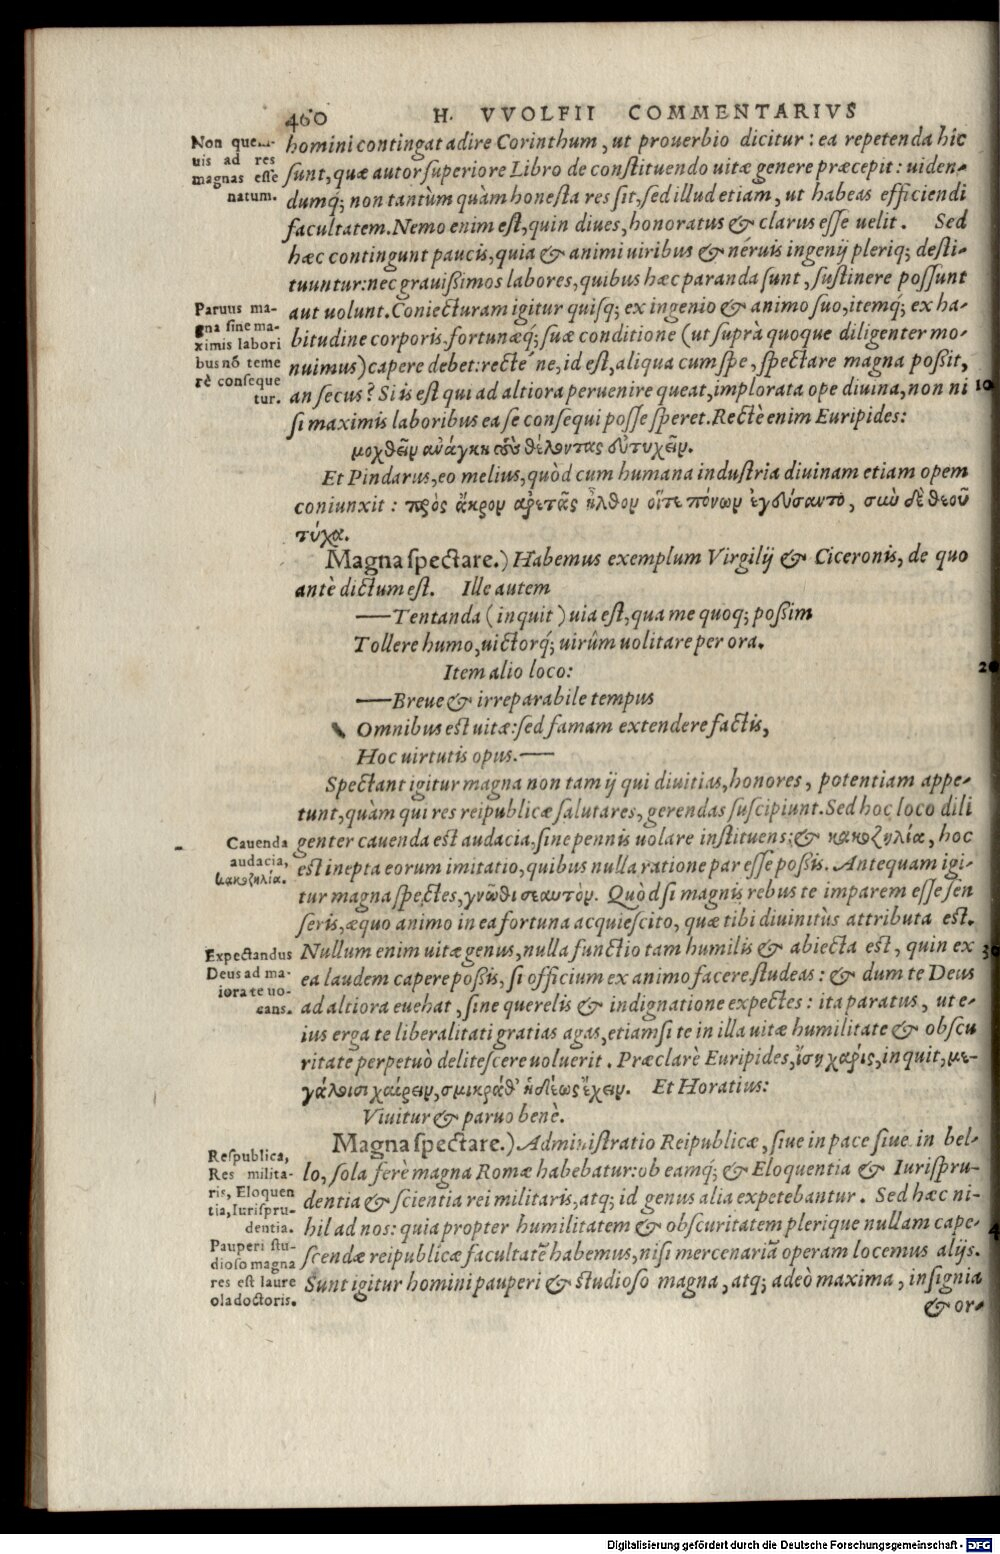 460 H. VVOLFII COMMENTARIVS
Non que-
uis ad res
magnas esse
natum.
homini contingat adire Corinthum, ut prouerbio dicitur: ea repetenda hîc
sunt, quæ autor superiore Libro de constituendo uitæ genere præcepit: uiden-
dumq́; non tantùm quàm honesta res sit, sed illud etiam, ut habeas efficiendi
facultatem. Nemo enim est, quin diues, honoratus & clarus esse uelit. Sed
hæc contingunt paucis, quia & animi uiribus & neruis ingenij pleriq; desti-
tuuntur: nec grauißimos labores, quibus hæc paranda sunt, sustinere possunt
Paruus ma-
gna sine ma-
ximis labori
bus nõ teme
rè conseque
tur.
aut uolunt. Coniecturam igitur quisq; ex ingenio & animo suo, itemq́; ex ha-
bitudine corporis, fortunæq́; suæ conditione (ut suprà quoque diligenter mo-
nuimus) capere debet: recte ne, id est, aliqua cum spe, spectare magna poßit,
an secus? Si is est qui ad altiora peruenire queat, implorata ope diuina, non ni 10
si maximis laboribus ea se consequi posse speret. Rectè enim Euripides:
μοχθεῖν ἀνάγκη τοὺς θέλοντας εὐτυχεῖν.
Et Pindarus, eo melius, quòd cum humana industria diuinam etiam opem
coniunxit: πρὸς ἄκρον ἀρετᾶς ἦλθον οἵτε πόνων ἐγεύσαντο, σὺν δὲ θεοῦ
τύχα.
Magna spectare.) Habemus exemplum Virgilij & Ciceronis, de quo
antè dictum est. Ille autem
—Tentanda (inquit) uia est, qua me quoq; poßim
Tollere humo, uictorq́; uirûm uolitare per ora.
Item alio loco: 20
—Breue & irreparabile tempus
Omnibus est uitæ: sed famam extendere factis,
Hoc uirtutis opus.—
Spectant igitur magna non tam ij qui diuitias, honores, potentiam appe-
tunt, quàm qui res reipublicæ salutares, gerendas suscipiunt. Sed hoc loco dili
Cauenda
audacia,
κακοζηλία.
genter cauenda est audacia, sine pennis uolare instituens: & κακοζηλία, hoc
est inepta eorum imitatio, quibus nulla ratione par esse poßis. Antequam igi-
tur magna spectes, γνῶθι σεαυτὸν. Quòd si magnis rebus te imparem esse sen
seris, æquo animo in ea fortuna acquiescito, quæ tibi diuinitùs attributa est.
Expectandus
Deus ad ma-
iora te uo-
cans.
Nullum enim uitæ genus, nulla functio tam humilis & abiecta est, quin ex 30
ea laudem capere poßis, si officium ex animo facere studeas: & dum te Deus
ad altiora euehat, sine querelis & indignatione expectes: ita paratus, ut e-
ius erga te liberalitati gratias agas, etiamsi te in illa uitæ humilitate & obscu
ritate perpetuò delitescere uoluerit. Præclarè Euripides, ἴση χάρις, inquit, με-
γάλοισι χαίρειν, σμικρά θ' ἡδέως ἔχειν. Et Horatius:
Viuitur & paruo benè.
Magna spectare.) Administratio Reipublicæ, siue in pace siue in bel-
Respublica,
Res milita-
ris, Eloquen
tia, Iurispru-
dentia.
lo, sola ferè magna Romæ habebatur: ob eamq́; & Eloquentia & Iurispru-
dentia & scientia rei militaris, atq; id genus alia expetebantur. Sed hæc ni-
hil ad nos: quia propter humilitatem & obscuritatem plerique nullam cape- 4
Pauperi stu-
dioso magna
res est laure
ola doctoris.
scendæ reipublicæ facultatẽ habemus, nisi mercenariã operam locemus alijs.
Sunt igitur homini pauperi & studioso magna, atq; adeò maxima, insignia
& or-
Digitalisierung gefördert durch die Deutsche Forschungsgemeinschaft - DFG